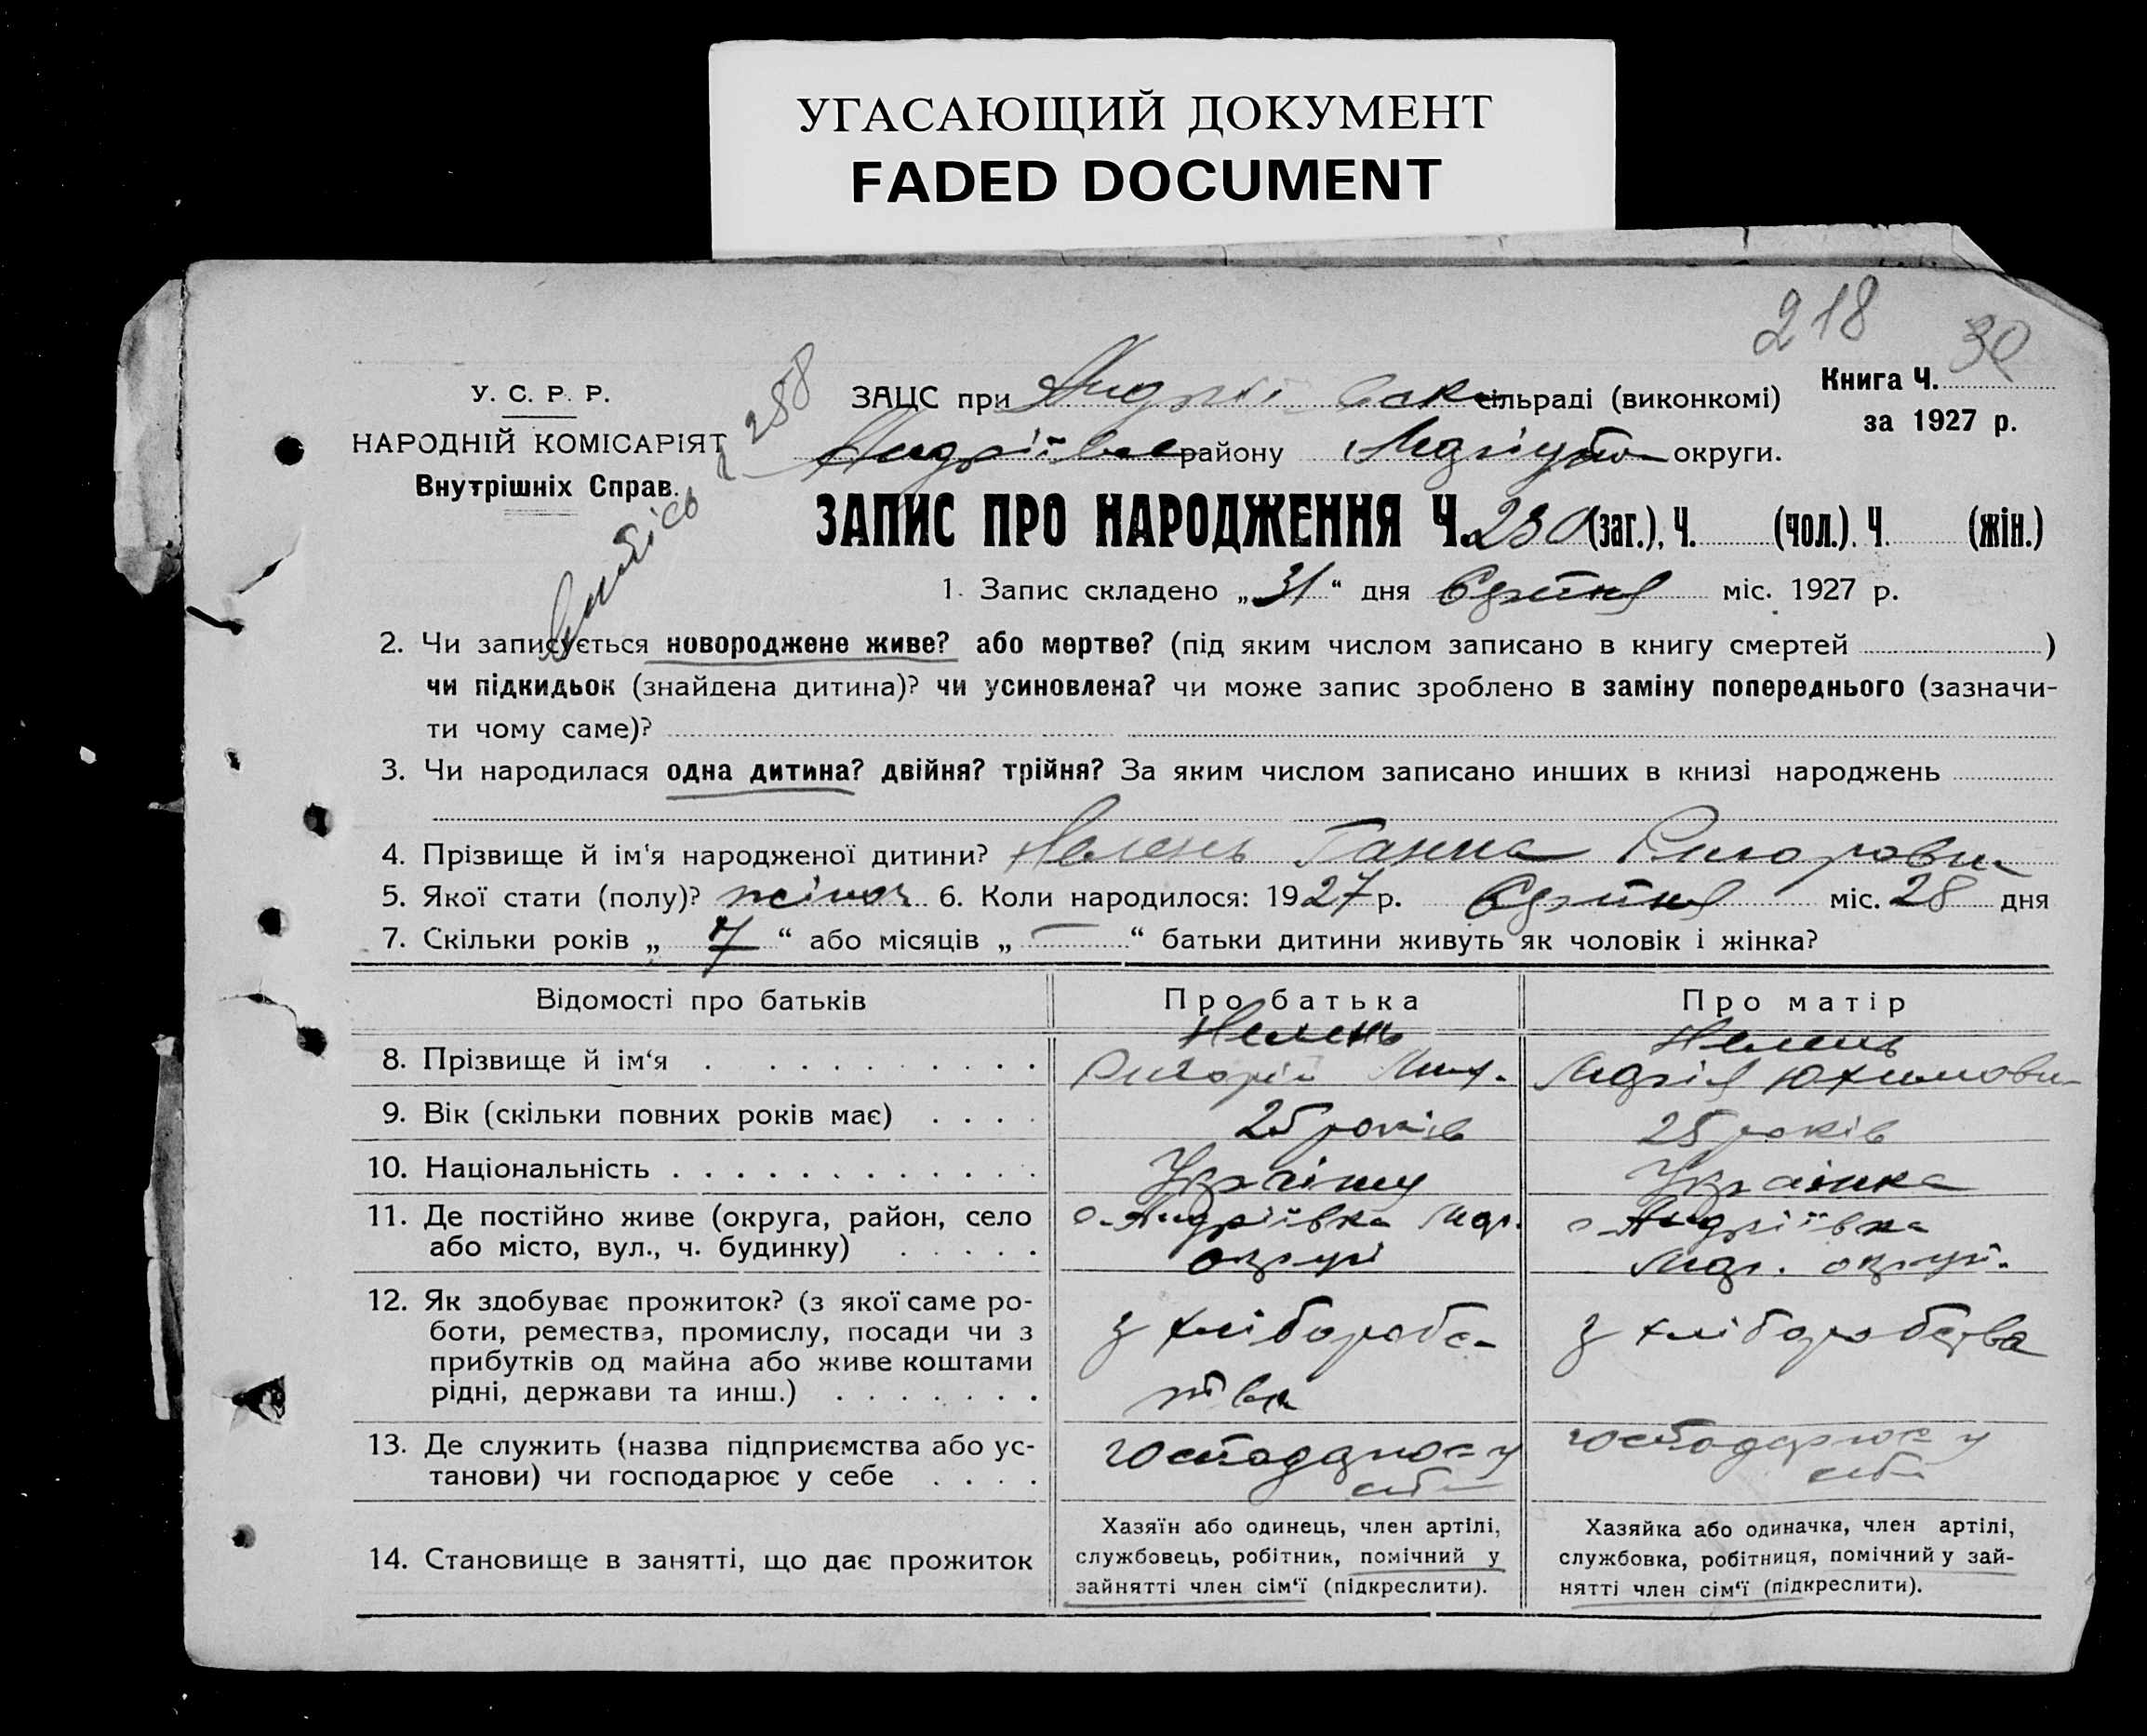 УГАСАЮЩИЙ ДОКУМЕНТ
FADED DOCUMENT
218
30
258
У. С. Р. Р.
НАРОДНІЙ КОМІСАРІЯТ
Внутрішніх Справ.
ЗАЦС при сільраді (виконкомі)
району округи.
Книга Ч.
за 1927 р.
ЗАПИС ПРО НАРОДЖЕННЯ Ч. 230 (заг.), Ч. (чол.). Ч. (жін.)
1. Запис складено „31“ дня міс. 1927 р.
2. Чи записується новороджене живе? або мертве? (під яким числом записано в книгу смертей )
чи підкидьок (знайдена дитина)? чи усиновлена? чи може запис зроблено в заміну попереднього (зазначи-
ти чому саме)?
3. Чи народилася одна дитина? двійня? трійня? За яким числом записано инших в книзі народжень
4. Прізвище й ім'я народженої дитини? Ганна
5. Якої стати (полу)? жіноч 6. Коли народилося: 1927 р. міс. 28 дня
7. Скільки років „ 7 “ або місяців „ — “ батьки дитини живуть як чоловік і жінка?
Відомості про батьків Про батька Про матір
8. Прізвище й ім‘я
Марія Юхимовн
9. Вік (скільки повних років має) 25 років 25 років
10. Національність Українка
11. Де постійно живе (округа, район, село
або місто, вул., ч. будинку)
с Андріївка Мар.
округи
с Андріївка
Мар. округи.
12. Як здобуває прожиток? (з якої саме ро-
боти, ремества, промислу, посади чи з
прибутків од майна або живе коштами
рідні, держави та инш.)
з хліборобс-
тва
з хліборобства
13. Де служить (назва підприємства або ус-
танови) чи господарює у себе
господарює у
себе
господарює у
себе
14. Становище в занятті, що дає прожиток
Хазяїн або одинець, член артілі,
службовець, робітник, помічний у
зайнятті член сім‘ї (підкреслити).
Хазяйка або одиначка, член артілі,
службовка, робітниця, помічний у зай-
нятті член сім‘ї (підкреслити).